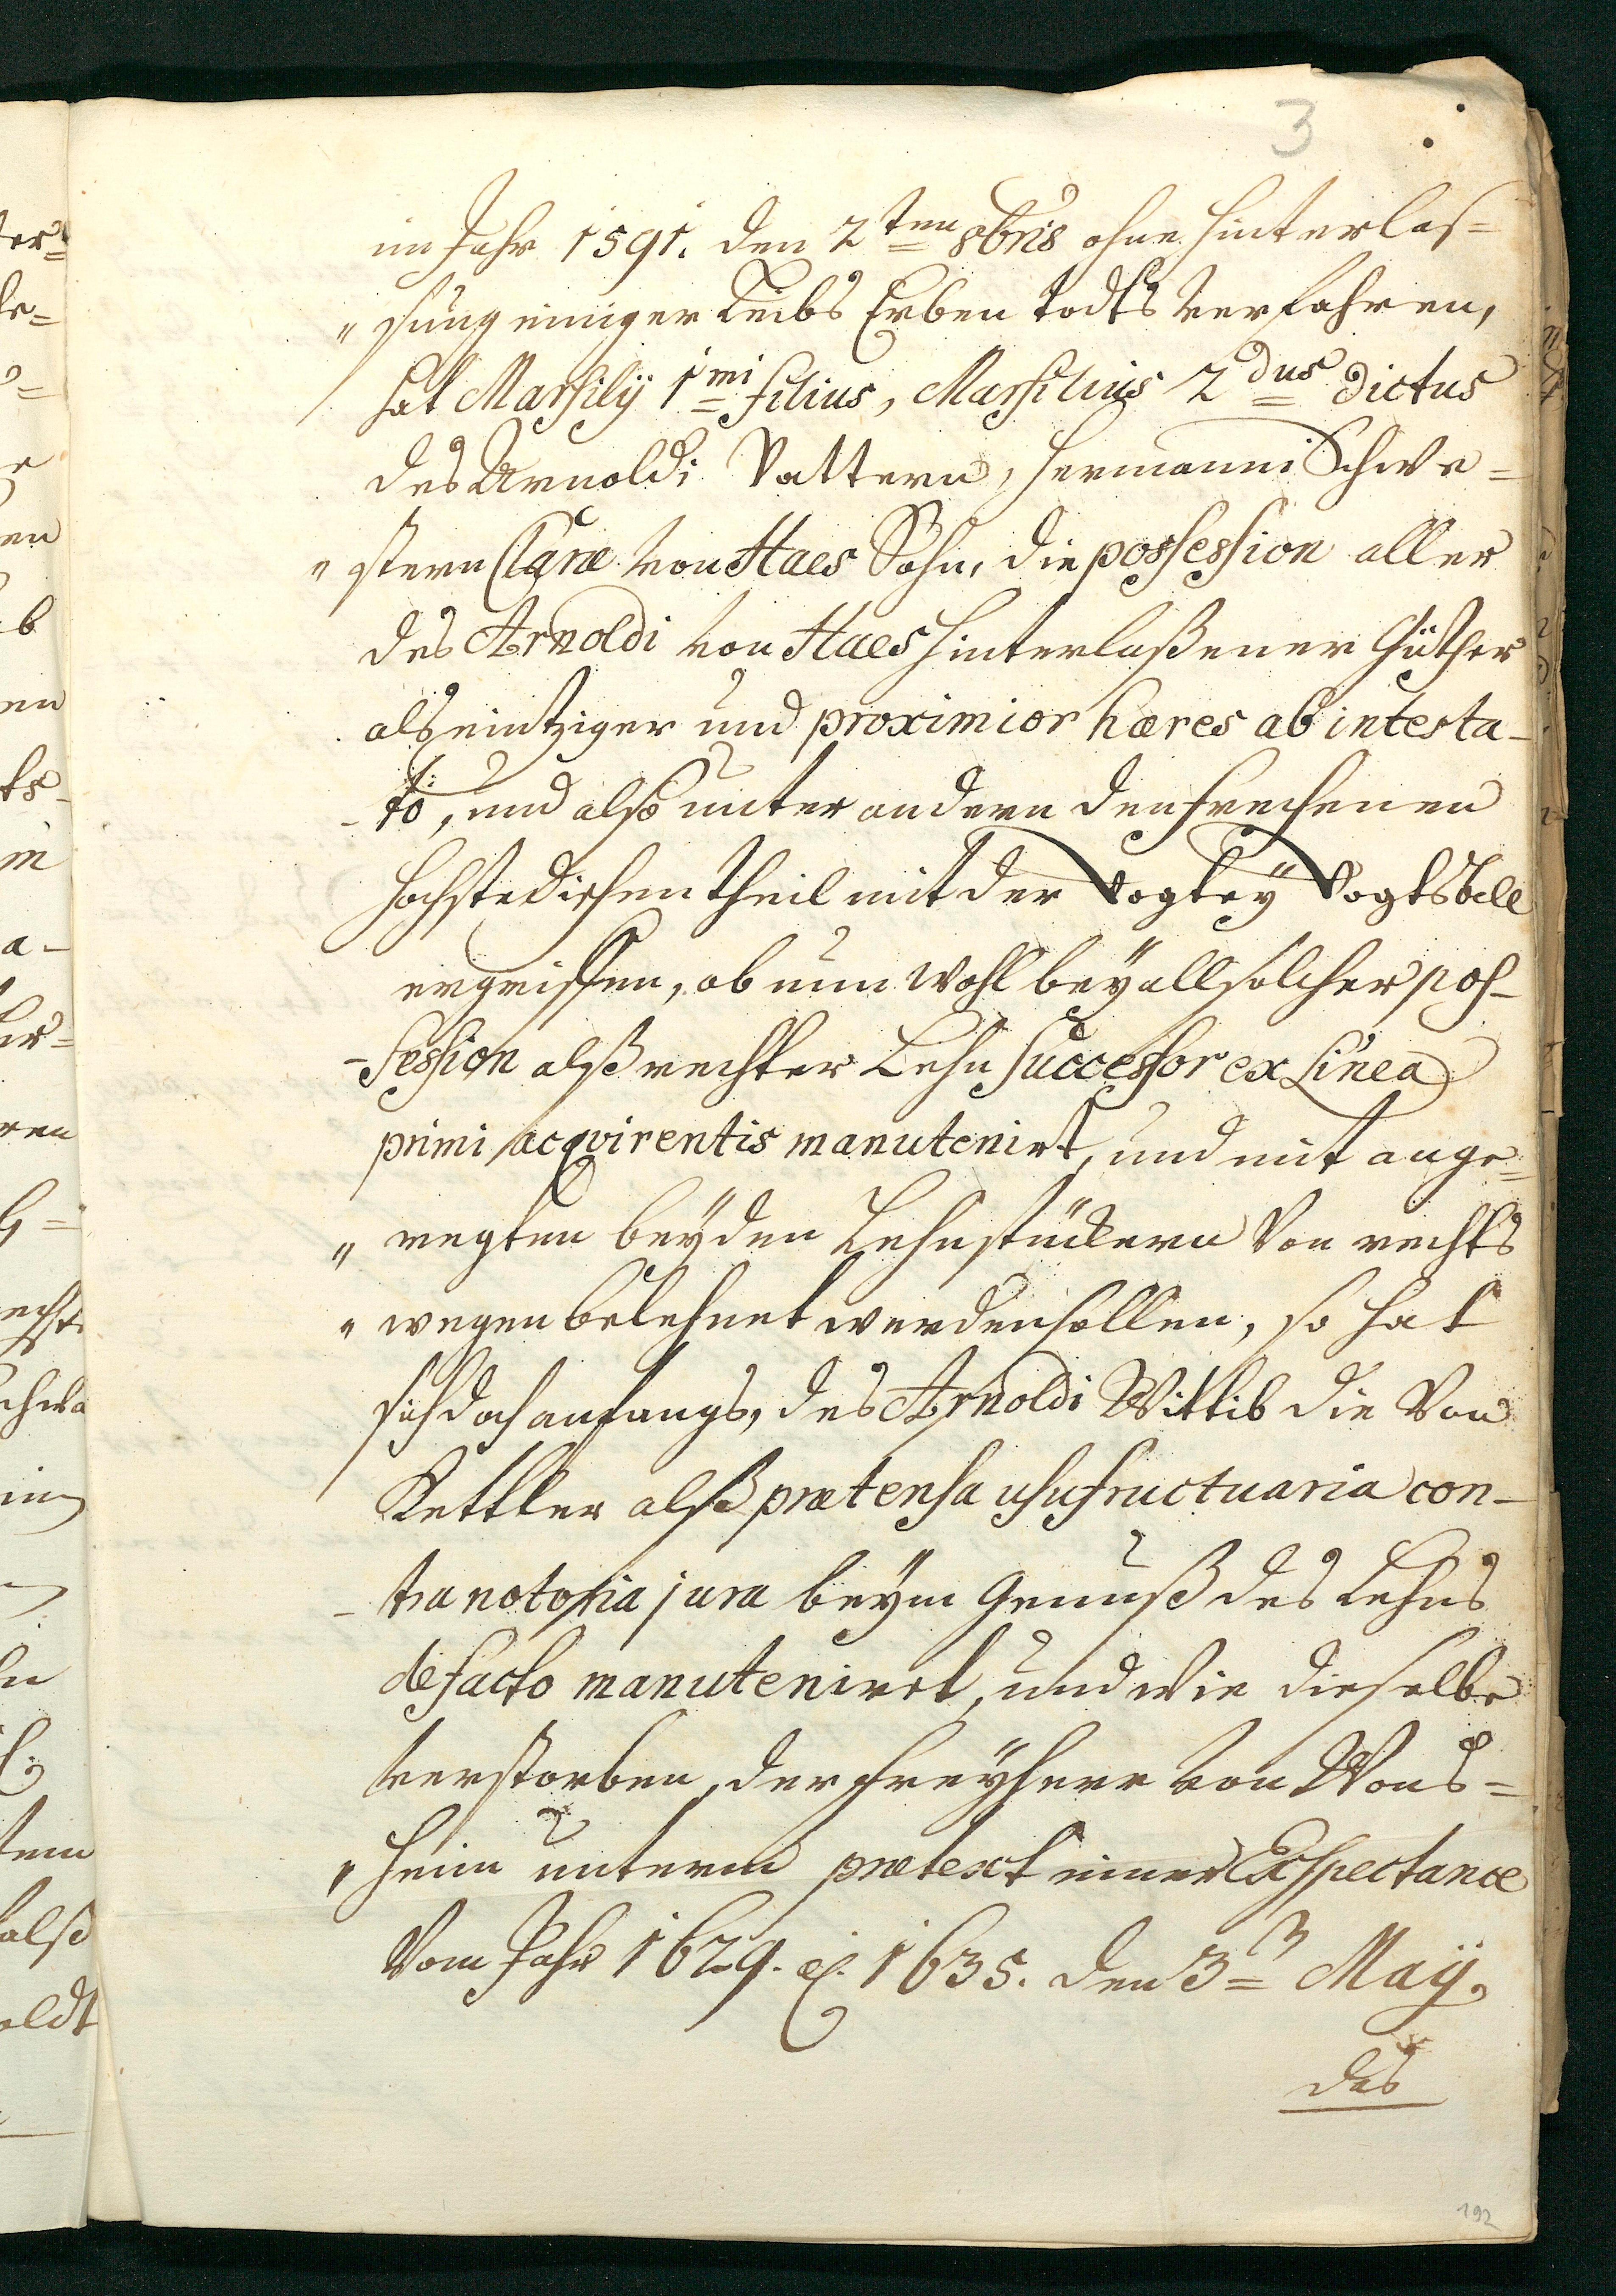 3
im Jahr 1591. den 2ten 8bris ohne hinterlas=
"sung einiger Leibs Erben todts verfahren,
hat Marsilÿ 1mi filius, Marsilius 2dus dictus
des Arnoldi Vattern, Hermanni Schwe=
"stern Claræ von Haes Sohn, die possession aller
des Arnoldi von Haes hinterlaßener Güther
als eintziger und proximior hæres ab intesta-
-to, und also unter andern den frechenen
Hochstedischen theil mit der Vogteÿ Vogtsbell
ergriffen, ob nun wohl beÿ all solcher pos-
-session alß rechter Lehn successor ex Linea
primi acqvirentis manutenirt, und mit ange=
"regten beÿden Lehnstückern Von rechts
"wegen belehnet werden sollen, so hat
sich doch anfangs, des Arnoldi Wittib die Von
Kettler alß prætensa usufructuaria con-
-tra notoria jura beÿm Genuß des Lehns
de facto manutenirt, und wie dieselbe
verstorben, der freÿherr von Wons=
"heim unterm prætext einer Exspectance
Vom Jahr 1629. et 1635. den 3n Maÿ.
des
192